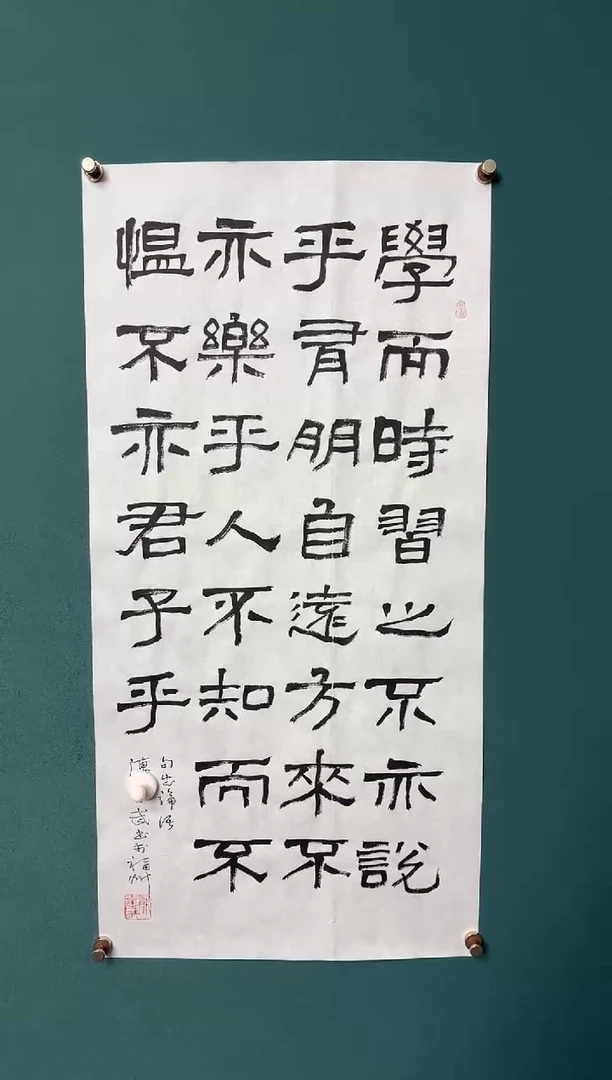 學而時習之不亦說
乎有朋自遠方來不
亦樂乎人不知而不
愠不亦君子乎
句出論語
陳 武書於福州